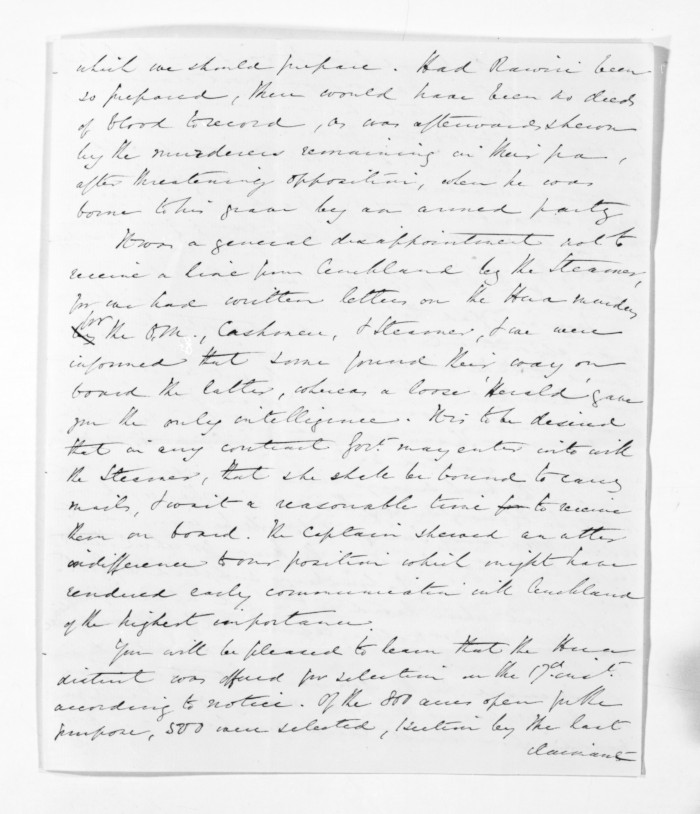 which we should prepare. Had Rawiri been
so prepared, there would have been no deeds
of blood to record, as was afterwards shewn
by the murderers remaining in their pa,
after threatening opposition, when he was
borne to his grave by an armed party
It was a general disappointment not to
receive a line from Auckland by the Steamer,
for we had written letters on the Hua murders
for the O.M., Cashmere, & Steamer, & we were
informed that some found their way on
board the latter, whereas a loose 'Herald' gave
you the only intelligence. It is to be desired
that in any contract Govt. may enter into with
the Steamer, that she shall be bound to carry
mails, & wait a reasonable time to receive
them on board. The Captain shewed an utter
indifference to our position which might have
rendered early communication with Auckland
of the highest importance.
You will be pleased to learn that the Hua
district was offered for selection on the 17th inst.
according to notice. Of the 800 acres open for the
purpose, 500 were selected, 1 section by the last
claimant